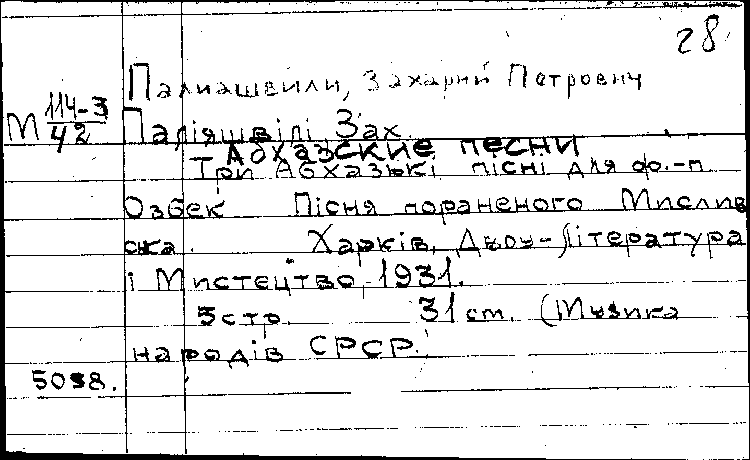 28
Палиашвили, Захарий Петрович
М 114-3/42 Паліяшвілі, Зах.
Абхазские песни
Три Абхазькі пісні для ф.-п.
Озбек Пісня пораненого Мислив
ска. Харків, Держ-Література
і Мистецтво, 1931.
5 стр. 31 ст. (Музика
народів СРСР.
5098.